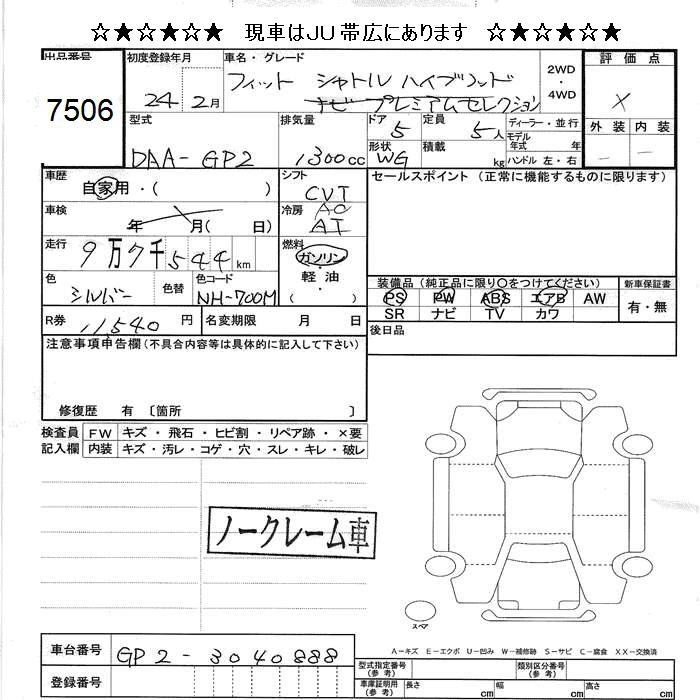 ☆★☆★☆★ 現車はJU帯広にあります ☆★☆★☆★
出品番号 初度登録年月 車名・グレード 評価点
7506 24年 2月 フィット シャトル ハイブリッド 2WD・4WD ×
ナビプレミアムセレクション
型式 排気量 ドア 5 定員 5人 ディーラー・並行 外装 内装
モデル年式 年
DAA-GP2 1300cc 形状 WG 積載 kg ハンドル 左・右 - -
車歴 シフト セールスポイント(正常に機能するものに限ります)
自家用・( ) CVT
車検 年 月( 日) 冷房 AC
AT
走行 9万7千544km 燃料
ガソリン
軽油
( )
色 シルバー 色替 色コード NH-700M
装備品(純正品に限り○をつけてください) 新車保証書
PS PW ABS エアB AW 有・無
SR ナビ TV カワ
R券 11540円 名変期限 月 日 後日品
注意事項申告欄(不具合内容等は具体的に記入して下さい)
修復歴 有 〔箇所 〕
検査員 FW キズ・飛石・ヒビ割・リペア跡・×要
記入欄 内装 キズ・汚レ・コゲ・穴・スレ・キレ・破レ
ノークレーム車
スペア
A-キズ E-エクボ U-凹み W-補修跡 S-サビ C-腐食 XX-交換済
車台番号 GP2-3040888
登録番号
型式指定番号(参考) 類別区分番号(参考)
車庫証明用(参考) 長さ cm 幅 cm 高さ cm